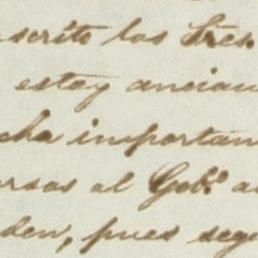 scrito los Sres.
estoy ancian
cha importan
rsos al Gobo. a
den, pues segu